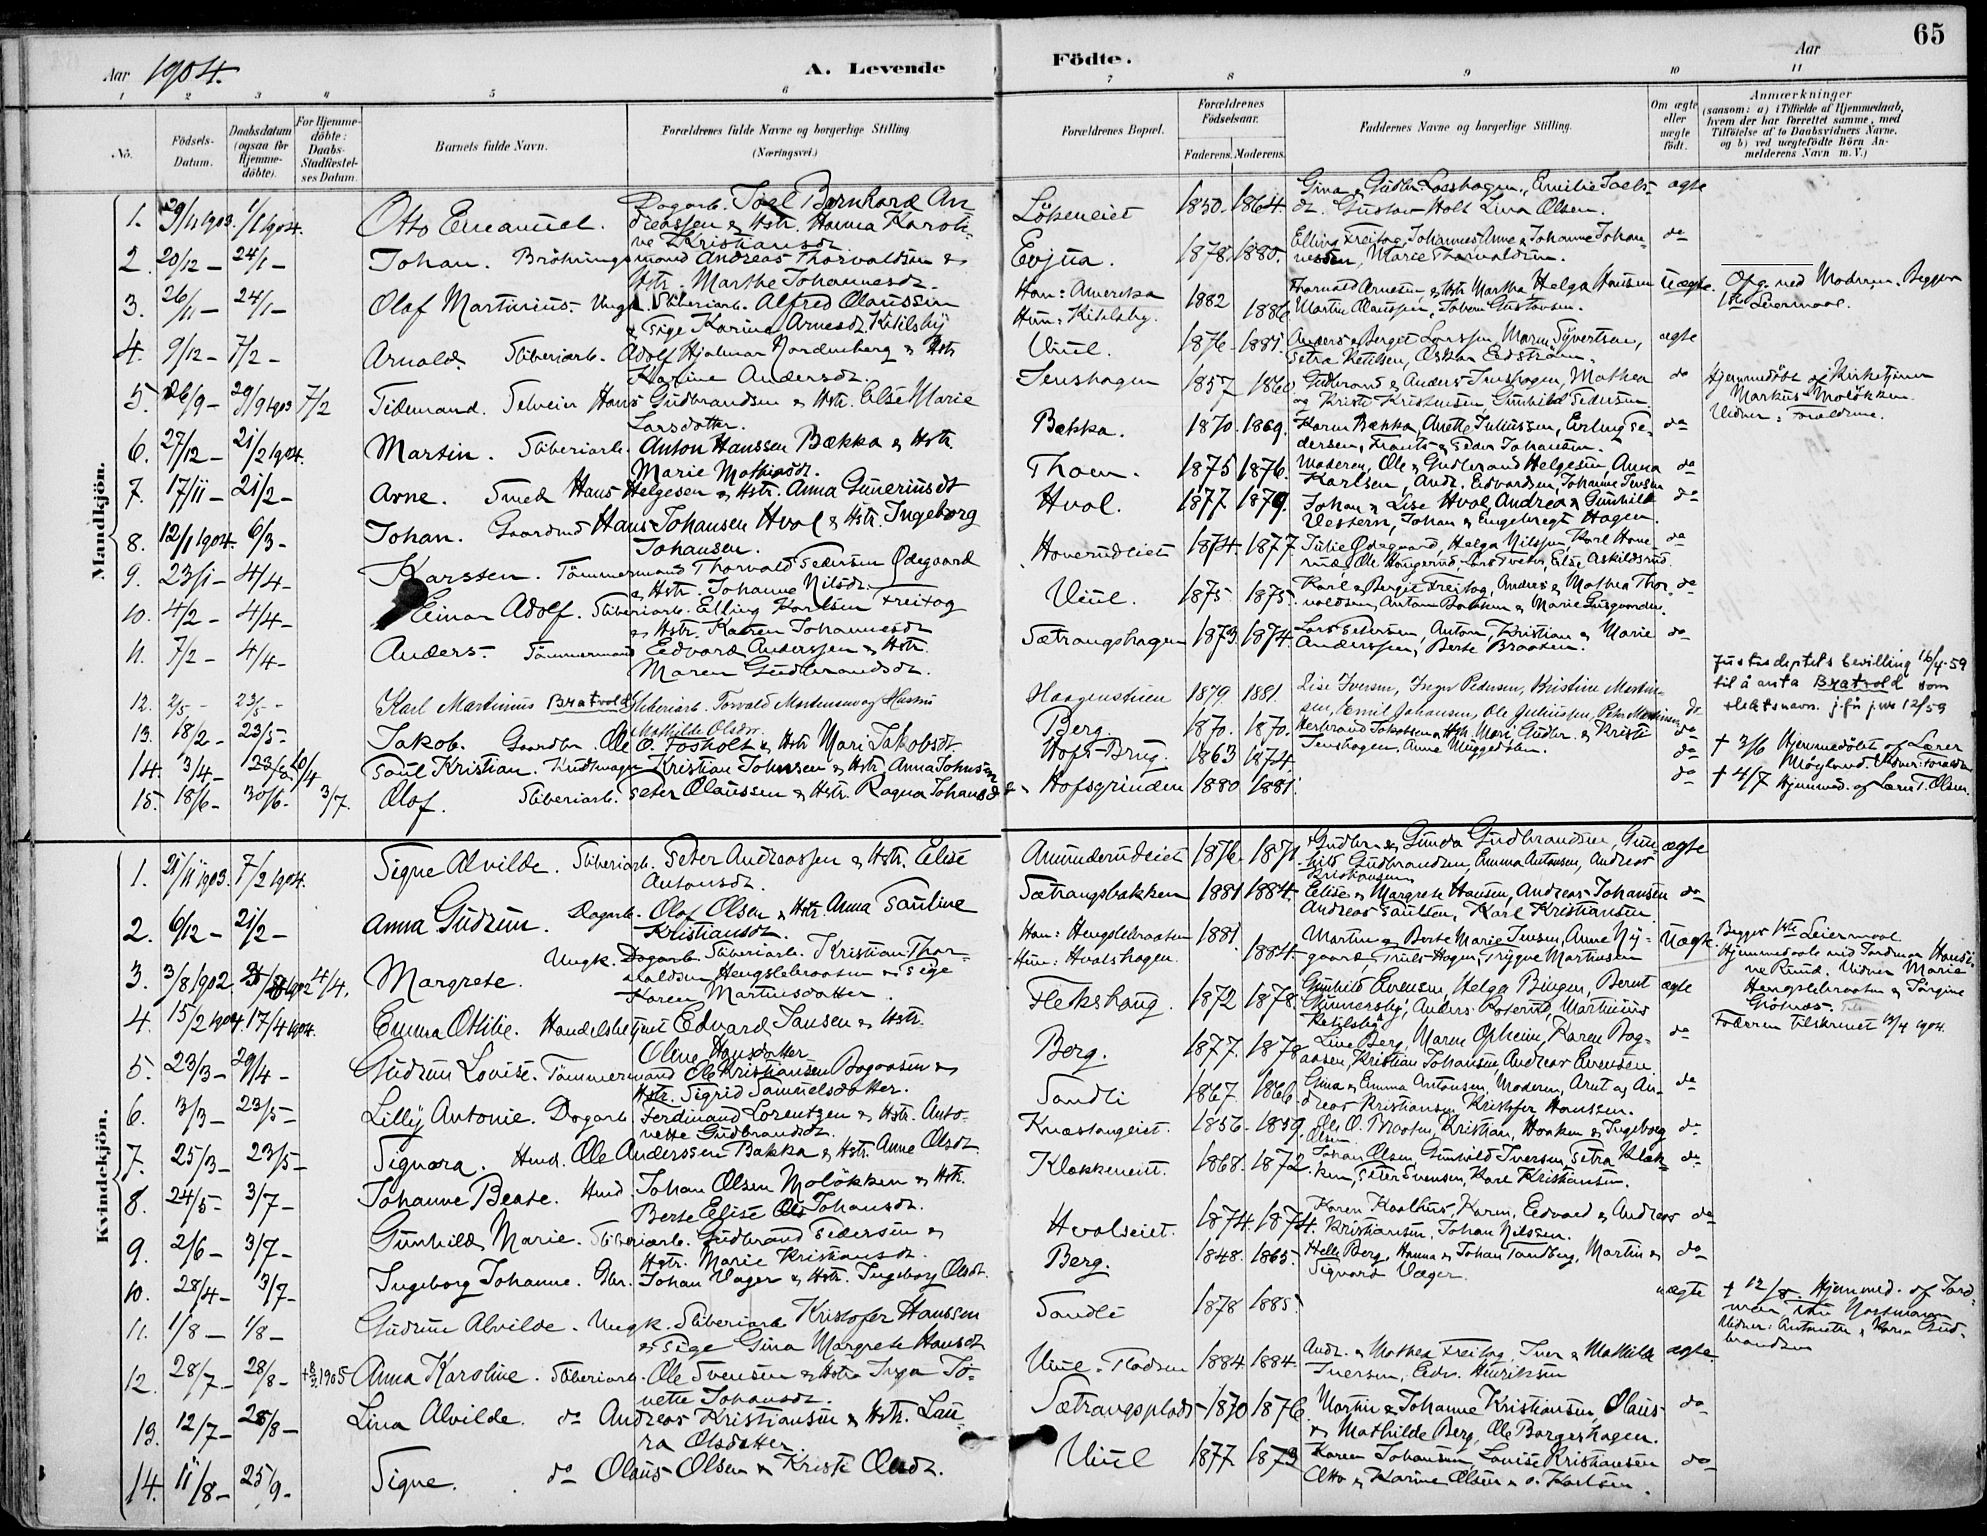 65
Aar 1904.
A. Levende Födte.
Aar
1 2 3 4 5 6 7 8 9 10 11
No.
Födsels-Datum.
Daabsdatum (ogsaa for Hjemme-döbte).
For Hjemme-döbte: Daabs-Stadfæstel-ses Datum.
Barnets fulde Navn.
Forældrenes fulde Navne og borgerlige Stilling (Næringsvei.)
Forældrenes Bopæl.
Forældrenes Födselsaar.
Faderens. Moderens.
Faddernes Navne og borgerlige Stilling.
Om ægte eller uægte födt.
Anmærkninger (saasom: a) i Tilfælde af Hjemmedaab, hvem der har forrettet samme, med Tilföielse af to Daabsvidners Navne. og b) ved uægtefödte Börn An-melderens Navn m. V.)
Mandkjön.
1. 29/11 1903. 1/1 1904. Otto Emanuel. Dagarb. Joel Bernhard An-
dreassen & Hstr. Hanna Karoli-
ne Kristiansdt. Lökeneiet 1850. 1864. ægte
Gustav Holt Lina Olsen.
2. 20/12 – 24/1 – Johan. Andreas Thorvaldsen &
Hstr. Marthe Johannesdt. Evjua. 1878. 1880. Elling Freitag, Johannes, Anne & Johanne Johan-
nessen, Marie Thorvaldsen. do
3. 26/11 – 24/1 – Olaf Martinius. Ungk. Sliberiarb. Alfred Olaussen
& Pige Karine Arnesdt. Kitilsby Han: Amerika
Hun: Kitilsby. 1882 1886 Martha Helga Hansen Uægte. Opg. ved Moderen. Begges
1ste Leiermaal.
4. 9/12 – 7/2 – Arnold. Sliberiarb. Adolf Hjalmar Nordenberg & Hstr.
Karine Andersdt. Viul. 1876. 1881. Petra Ketilsen, Oskar Edström. ægte
5. 26/9 – 29/9 1903 7/2 Tidemand. Selveier Hans Gudbrandsen & Hstr. Else Marie
Larsdatter. Jenshagen 1857 1860 Gudbrand & Anders Jenshagen, Mathea
og Kristi Kristensen, Gunhild Pedersen. do Hjemmedöbt af Kirketjener
Markus Molökken.
Vidner: Forældrene.
6. 27/12 – 21/2 1904. Martin. Sliberiarb. Anton Hanssen Bækka & Hstr.
Marie Mathisdt. Bækka. 1870. 1869. Karen Bækka, Anette Juliussen, Erling Pe-
dersen, Frants & Peder Johansen. do
7. 17/11 – 21/2 – Arne. Smed Hans Helgesen & Hstr. Anna Guneriusdt Thoen. 1875 1876. Moderen, Ole & Gudbrand Helgesen, Anna
Karlsen, Andr. Edvardsen, Johanne Jensen do
8. 12/1 1904. 6/3 – Johan. Gaardmd Hans Johansen Hval & Hstr. Ingeborg
Johansen. Hval. 1877 1879. Johan & Lise Hval, Andrea & Gunhild
Vestern, Johan & Engebregt Hagen. do
9. 23/1 – 4/4 – Karsten. Tömmermand Thorvald Pedersen Ödegaard
& Hstr. Johanne Nilsdt. Honerudeiet 1874. 1877. Julie Ödegaard, Helga Nilssen, Karl Hone-
rud, Else Askildsrud. do
10. 4/2 – 4/4 – Einar Adolf. Sliberiarb. Elling Karlsen Freitag
& Hstr. Karen Johannesdt Viul. 1875 1875. Karl & Bergit Freitag, Andrea & Mathea Thor-
valdsen, do
11. 7/2 – 4/4 – Anders. Tömmermand Edvard Anderssen & Hstr.
Maren Gudbrandsdt. Sætrangshagen 1873. 1874. Lars Petersen, Anton, Kristian & Marie
Anderssen, Berte Braaten. do
12. 2/5 – 23/5 – Karl Martinius Bratvold Sliberiarb. Torvald Martinsen og Hustru
Mathilde Olsdtr. Haagenstuen 1879. 1881. Lise Iversen, Inger Pedersen, Kristine Martin-
sen, Emil Johansen, Ole Juliussen, Peder Martinsen do
Justisdeptets bevilling 16/4-59
til å anta Bratvold som
slektsnavn. jfr jnr 12/59
13. 18/2 – 23/5 – Jakob. Gaardbr. Ole O. Fosholt & Hstr. Mari Jakobsdt. Berg. 1870. 1870. do
14. 3/4 – Paul Kristian. Kristian Johnsen & Hstr. Anna Johnsen Hofs-Brug. 1863 1874. Jenshagen, Anne Muggedalen. do † 3/6 Hjemmedöbt af Lærer
15. 18/6 – 30/6 – 3/7. Olaf. Sliberiarb. Peter Olaussen & Hstr. Ragna Johansdt. Hofsgrinden 1880 1881. do † 4/7 Hjemmed. af Lærer T. Olsen.
Kvindekjön.
1. 21/11 1903. 7/2 1904. Signe Alvilde. Sliberiarb. Peter Andreassen & Hstr. Elise
Antonsdt. Amunderudeiet 1876. 1871 Gudbr. & Gunda Gudbrandsen, Gun-
hild Gudbrandsen, Emma Antonsen, Andreas
Kristiansen ægte
2. 6/12 – 21/2 – Anna Gudrun. Dagarb. Olaf Olsen & Hstr. Anna Pauline
Kristiansdt. Sætrangsbakken 1881 1884. Elise & Margrete Hansen, Andreas Johansen
Andreas Paulsen, Karl Kristiansen. do
3. 3/8 1902. 1902 4/4. Margrete. Ungk. Sliberiarb. Kristian Thor-
valdsen Hengslebraaten & Pige
Karen Martinsdatter. Han: Hengslebraaten
Hun: Hvalshagen. 1881. 1884. Martin & Berte Marie Jensen, Anne Ny-
gaard, Truls Hagen, Trygve Martinsen Uægte Begges 1ste Leiermaal
Hjemmedöbt ved Jordmor Hansi-
ne Ruud. Vidner Marie
Hengslebraaten & Jörgine
Grötnes.
Faderen tilskrevet 13/4 1904.
4. 15/2 1904. 17/4 1904. Emma Otilie. Handelsbetjent Edvard Jansen & Hstr.
Oline Hansdatter Flekshaug 1872 1878. Gunhild Evensen, Helga Bingen, Bernt
Gunnersby, Anders Roserud, Martinius
Ketilsby. ægte
5. 23/3 – 29/4 – Gudrun Lovise. Tömmermand Ole Kristiansen Bagaasen &
Hstr. Sigrid Samuelsdatter. Berg. 1877. 1878 Line Berg, Maren Opheim, Karen Bag-
aasen, Kristian Johansen, Andreas Evensen. do
6. 3/3 – 23/5 – Lilly Antonie. Dagarb. Ferdinand Lorentzen & Hstr. Anto-
nette Gudbrandsdt. Sandli 1867. 1866. Gina & Emma Antonsen, Moderen, Arnt og An-
dreas Kristiansen, Kristofer Hanssen. do
7. 25/3 – 23/5 – Signora. Hmd. Ole Anderssen Bakka & Hstr. Anne Olsdt. Knæstangeiet. 1856. 1859. Ole O. Braaten, Kristian, Haaken & Ingeborg
Olsen do
8. 24/5 – 3/7 – Johanne Beate. Hmd. Johan Olsen Molökken & Hstr.
Berte Elise Johansdt. Klækkeneiet. 1868. 1872. Johan Olsen, Gunhild Iversen, Petra Klæk-
ken, Peter Svensen, Karl Kristiansen. do
9. 2/6 – 3/7 – Gunhild Marie. Sliberiarb. Gudbrand Pedersen &
Hstr. Marie Kristiansdt. Hvalseiet. 1874. 1874. Karen Kaalhus, Karen, Edvard & Andreas
Kristiansen, Johan Nilssen. do
10. 28/4 – 3/7 – Ingeborg Johanne. Gbr. Johan Vager & Hstr. Ingeborg Olsdt. Berg. 1848. 1865. Helle Berg, Hanna & Johan Tandberg, Martin &
Sigvard Væger. do
11. 1/8 – 1/8 – Gudrun Alvilde. Ungk. Sliberiarb. Kristofer Hanssen
& Pige Gina Margrete Hansdt Sandli 1878 1885. uægte † 12/8. Hjemmed. af Jord-
Vidner: Antonette & Karen Gud-
brandsen
12. 28/7 – 28/8 – † 1905 Anna Karoline. Sliberiarb. Ole Svensen & Hstr. Inga Jo-
nette Johansdt. Viul-Flodsen 1884 1884. Andr. & Mathea Freitag, Iver & Mathilde
Iversen, Edv. Henriksen ægte.
13. 12/7 – 28/8 – Lina Alvilde. do Andreas Kristiansen & Hstr. Lau-
ra Olsdatter Sætrangsplads 1870 1876. Martin & Johanne Kristiansen, Olaus
& Mathilde Berg, Ole Borgershagen. do
14. 11/8 – 25/9 – Signe. do Olaus Olsen & Kristi Olsdt. Viul 1877 1873 Karen Johansen, Louise Kristiansen
Otto & Karine Olsen & O. Karlsen. do